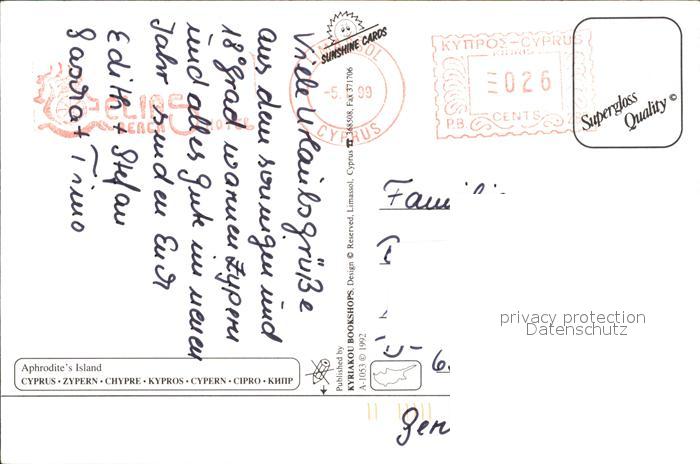 Viele Urlaubsgrüße
aus dem sonnigen und
18° grad warmen Zypern
und alles gute im neuen
Jahr senden Euch
Edith + Stefan
Sandra + Timo
SUNSHINE CARDS
LIMASSOL
-5. 99
CYPRUS
ELIAS
BEACH HOTEL
ΚΥΠΡΟΣ-CYPRUS
KIBRIS
026
P.B. CENTS
Supergloss
Quality ©
Famili
privacy protection
Datenschutz
6.
Ger
Published by
KYRIAKOU BOOKSHOPS. Design © Reserved, Limassol, Cyprus ☎ 368508, Fax 371706
A-1053 © 1992
Aphrodite's Island
CYPRUS • ZYPERN • CHYPRE • KYPROS • CYPERN • CIPRO • КИПР